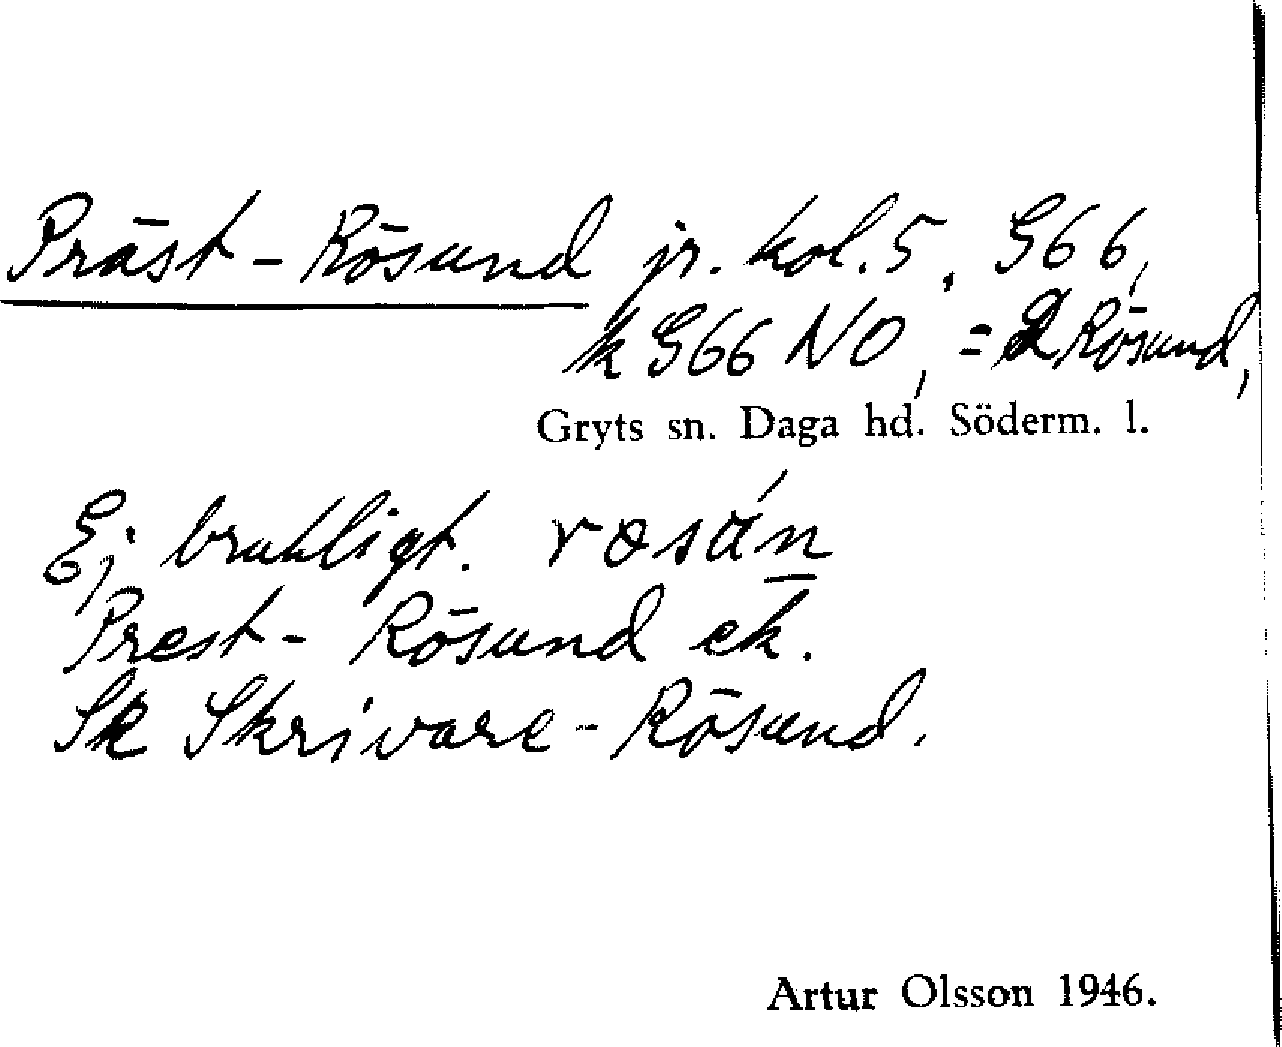 Präst-Rösund jr. kol. 5, G66,
k G66 NO, = 2 Rösund,
Gryts sn. Daga hd. Söderm. l.
Ej brukligt. rosán
Prest-Rösund ek.
Sk Skrivare-Rösund.
Artur Olsson 1946.